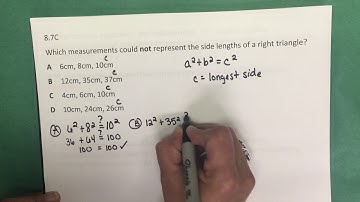 8.7C
Which measurements could not represent the side lengths of a right triangle?
c
A 6cm, 8cm, 10cm
c
B 12cm, 35cm, 37cm
c
C 4cm, 6cm, 10cm
c
D 10cm, 24cm, 26cm
a² + b² = c²
c = longest side
A 6² + 8² ?= 10²
36 + 64 ?= 100
100 = 100 ✓
B 12² + 35² ?